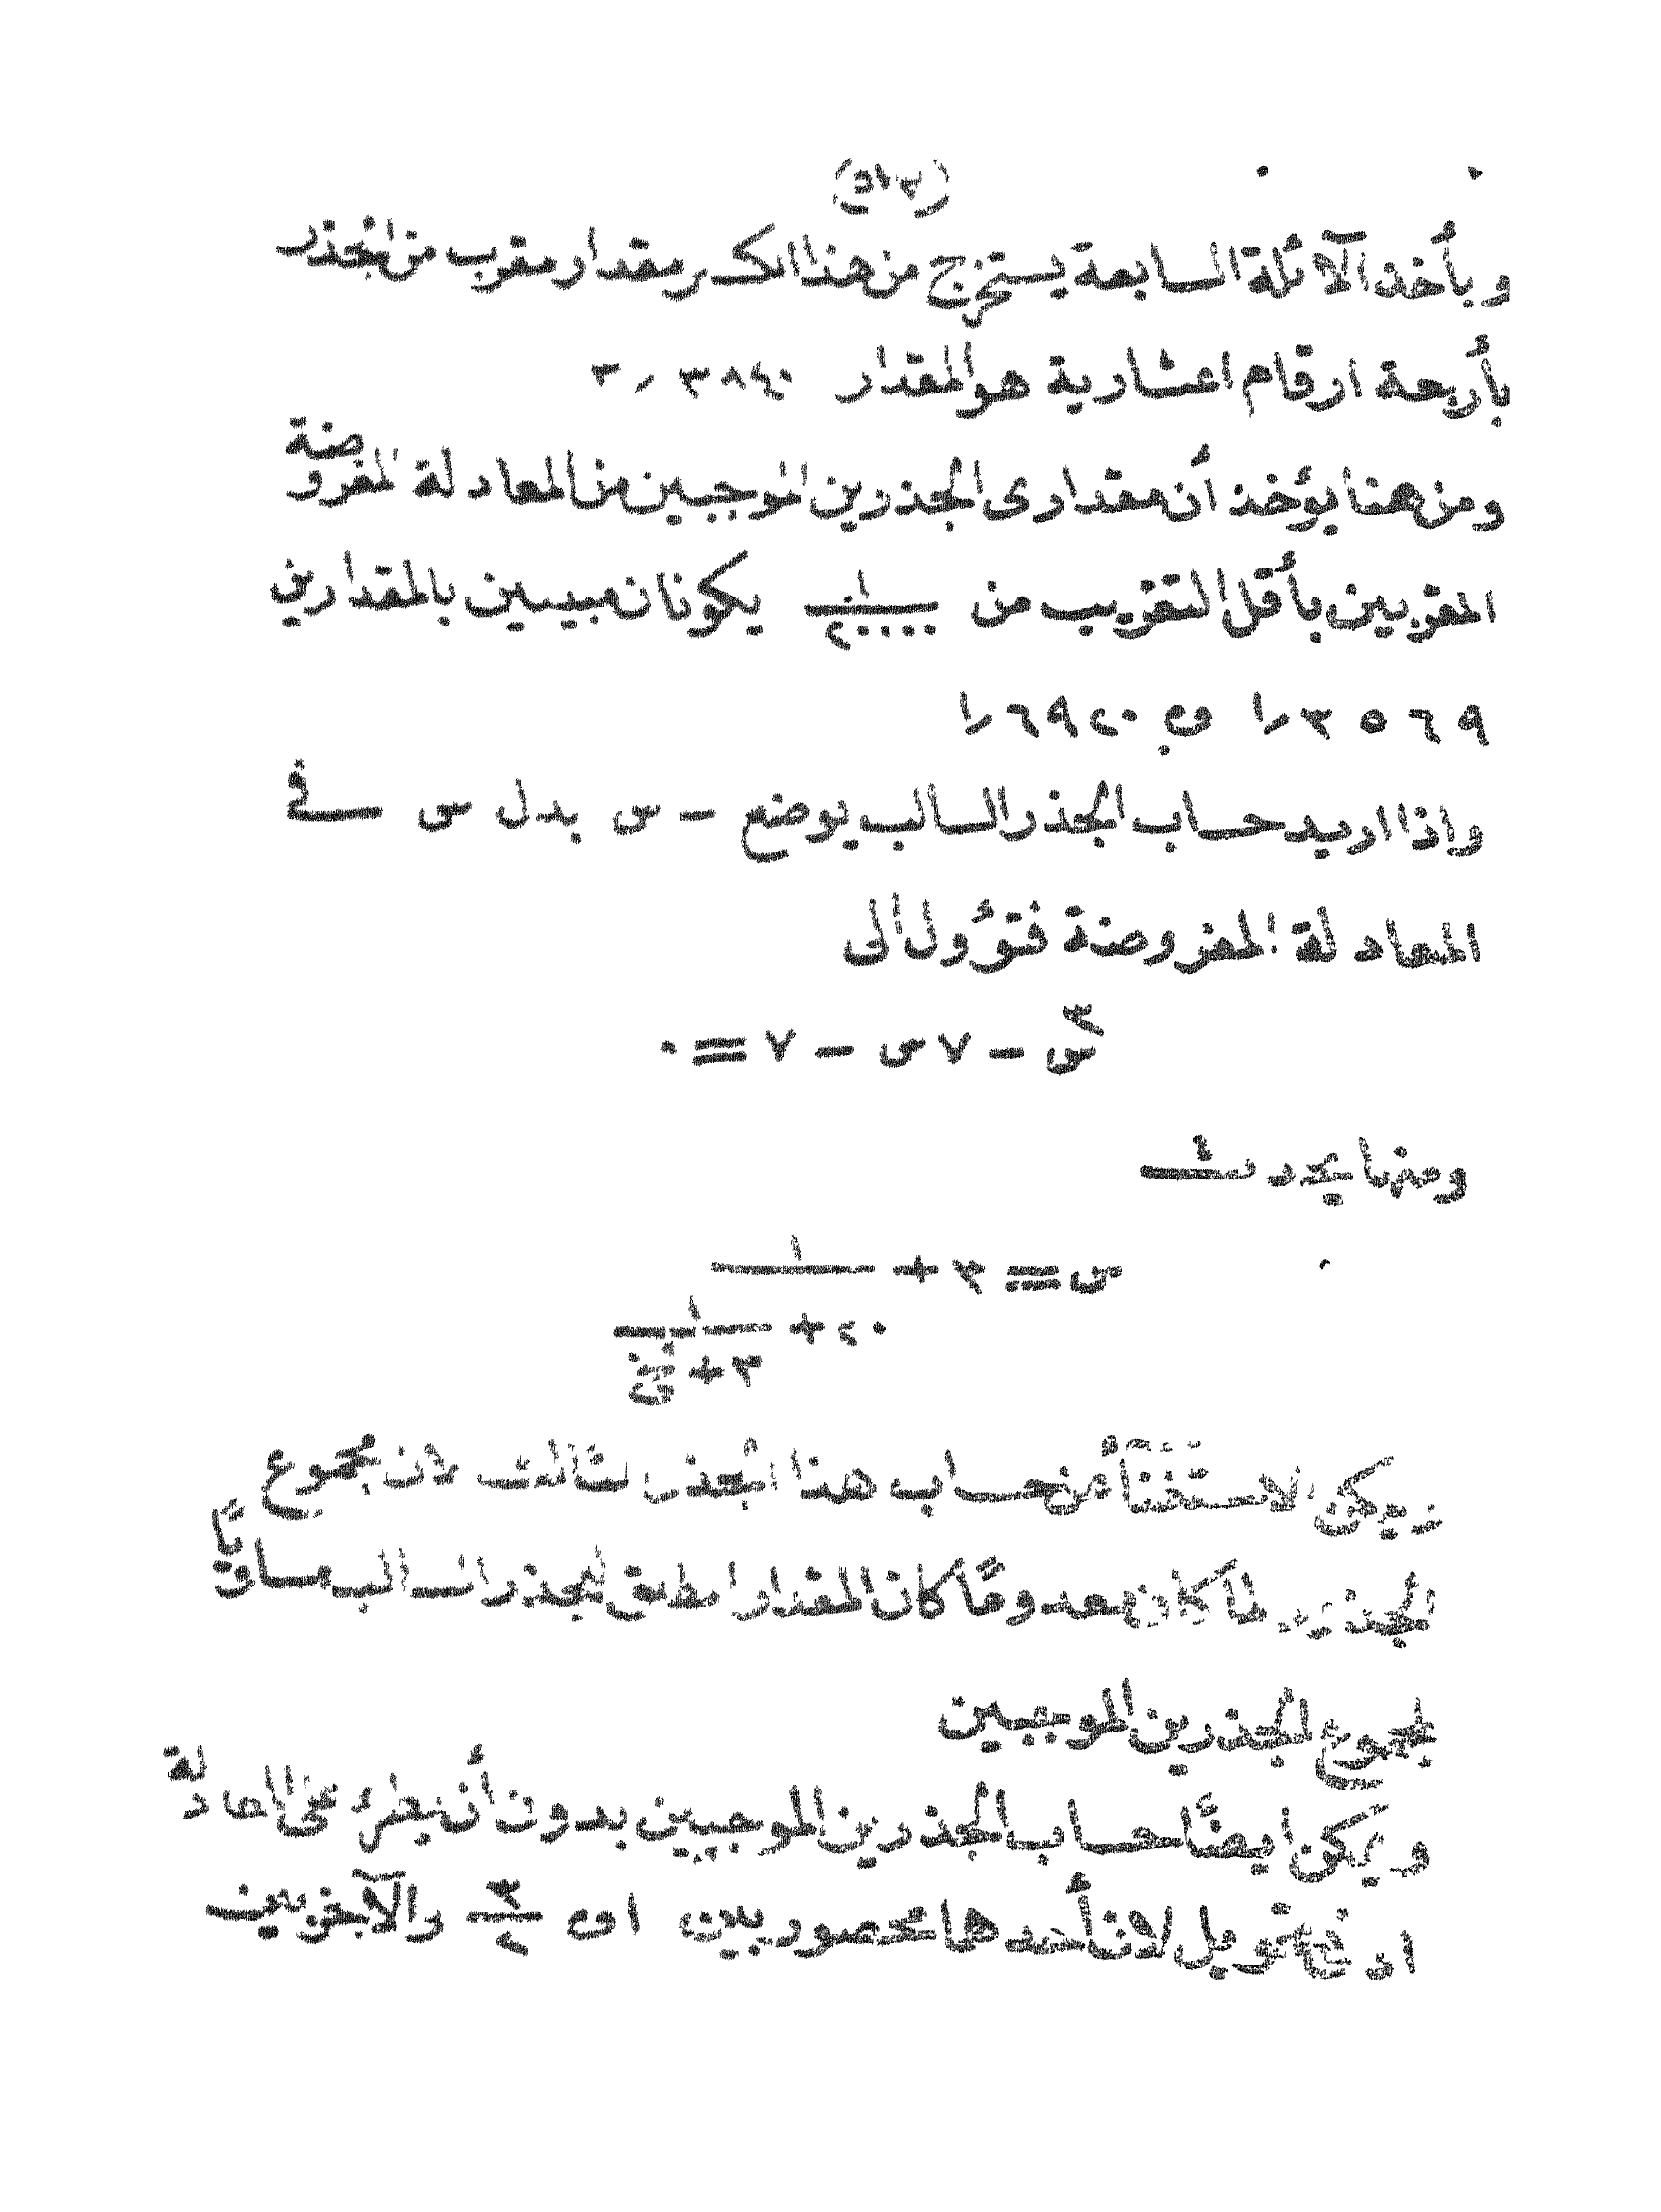 وبأخذ الآئلة السابعة يستخرج من هذا الكسر مقدار مقرب من الجذر
بأربعة ارقام اعشارية هو المقدار ٣٫٣٨٤٠
ومن هنا يؤخذ أن مقدارى الجذرين الموجبين من المعادلة المفروضة
المقربين بأقل التقريب من ١/٢٠٠٠٠ يكونان مبينين بالمقدارين
١٫٣٥٦٩ و ١٫٦٩٢٠
واذا اريد حساب الجذر السالب يوضع – س بدل س فى
المعادلة المفروضة فتؤول الى
س٣ – ٧س – ٧ = ٠
ومنها يحدث
س = ٣ + ١
٢٠ + ١
٣ +
ويمكن الاستغناء عن حساب هذا الجذر الثالث لان مجموع
الجذور لما كان معدوماً كان المقدار المطلق للجذر السالب مساوياً
لمجموع الجذرين الموجبين
ويمكن ايضاً حساب الجذرين الموجبين بدون أن يطرأ على المعادلة
ادنى تحويل لان أحدهما محصور بين ١ و ٣/٢ والآخر بين